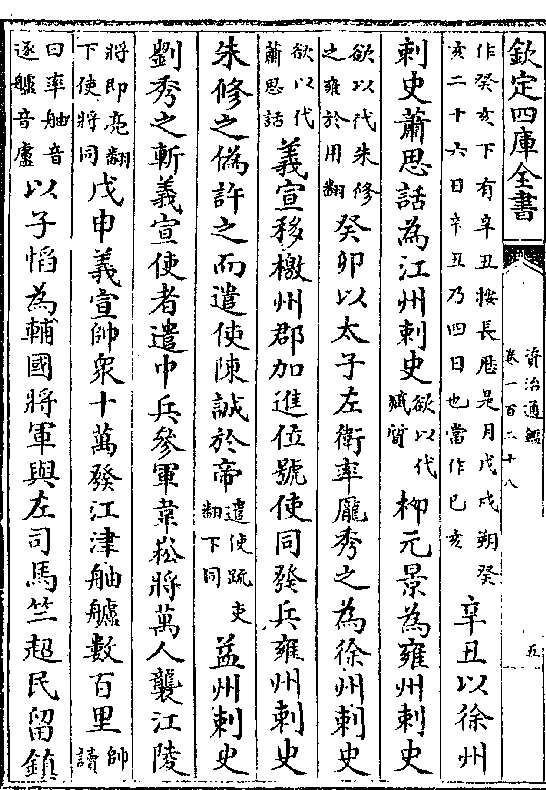 欽定四庫全書
資治通鑑
卷一百二十八
五
作癸亥下有辛丑按長厯是月戊戌朔癸
亥二十六日辛丑乃四日也當作巳亥
辛丑以徐州
刺史蕭思話為江州刺史
欲以代
臧質
栁元景為雍州刺史
欲以代朱修
之雍於用翻
癸卯以太子左衛率龎秀之為徐州刺史
欲以代
蕭思話
義宣移檄州郡加進位號使同發兵雍州刺史
朱修之偽許之而遣使陳誠於帝
遣使疏吏
翻下同
益州刺史
劉秀之斬義宣使者遣中兵參軍韋崧將萬人襲江陵
將即亮翻
下使將同
戊申義宣帥衆十萬發江津舳艫數百里
帥
讀
曰率舳音
逐艫音盧
以子慆為輔國將軍與左司馬竺超民留鎮